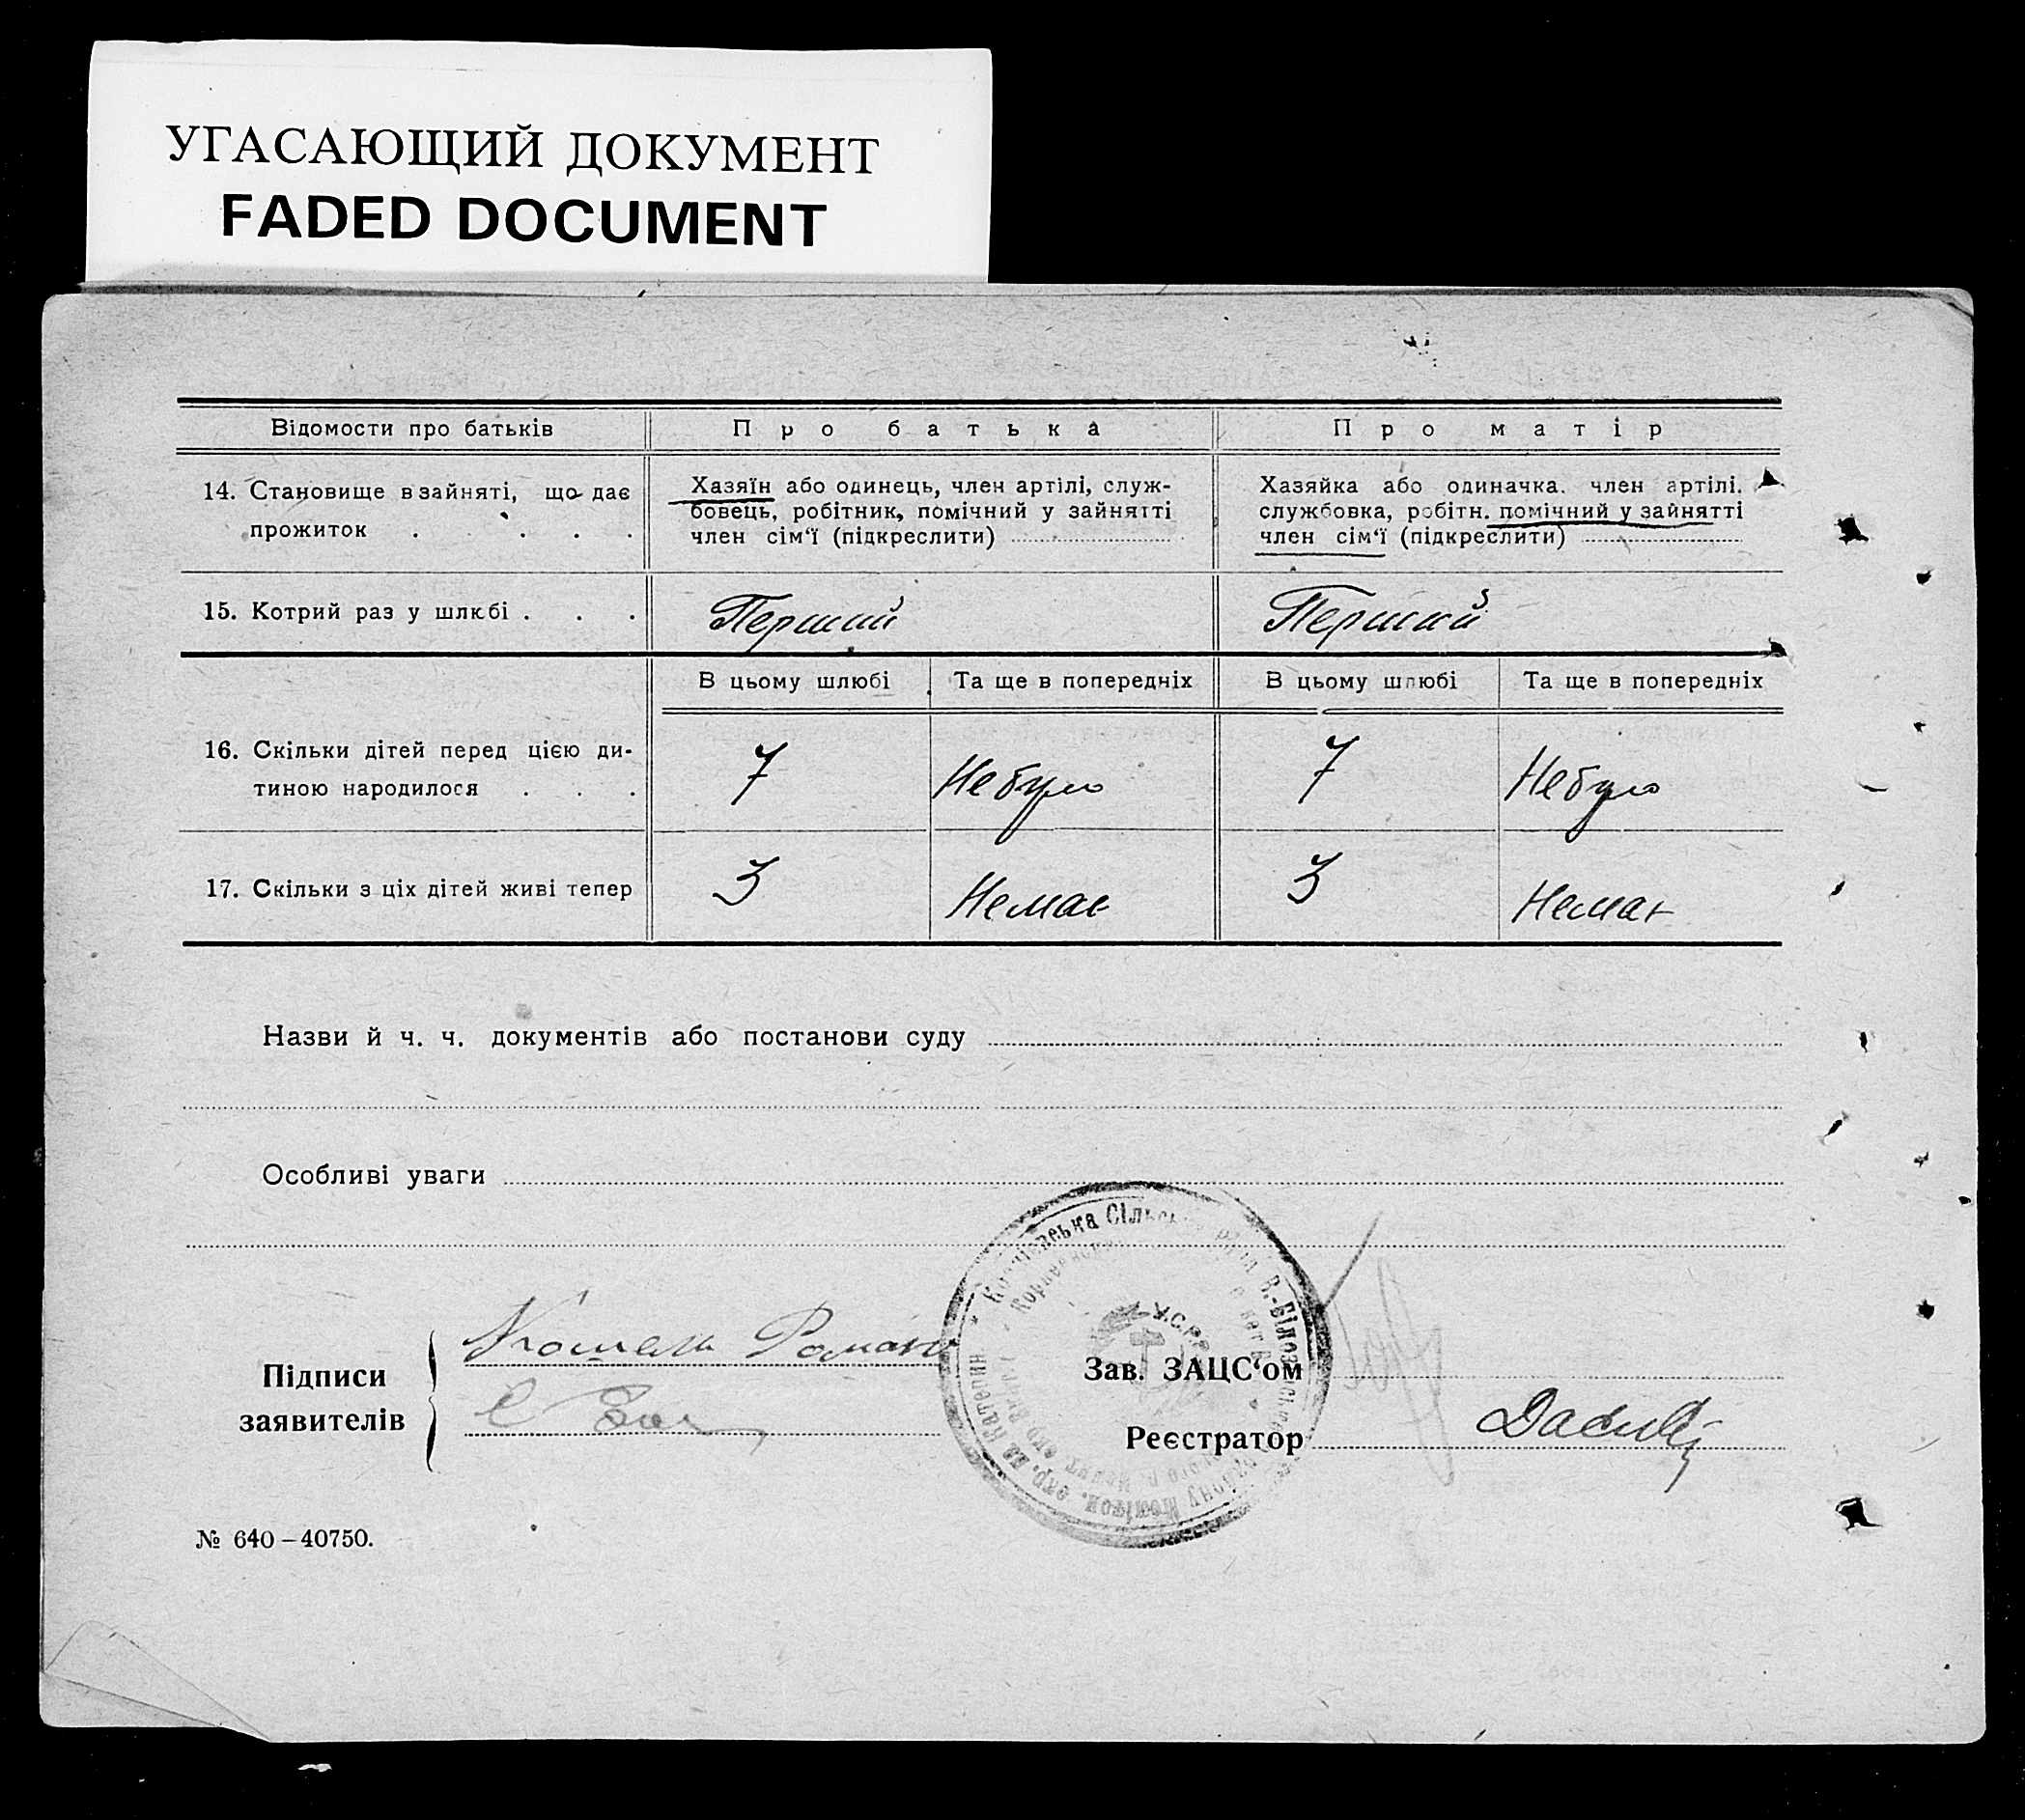 УГАСАЮЩИЙ ДОКУМЕНТ
FADED DOCUMENT
Відомости про батьків
Про батька
Про матір
14. Становище в зайняті, що дає
прожиток . . . .
Хазяїн або одинець, член артілі, служ-
бовець, робітник, помічний у зайнятті
член сім‘ї (підкреслити)
Хазяйка або одиначка. член артілі.
службовка, робітн. помічний у зайнятті
член сім‘ї (підкреслити)
15. Котрий раз у шлюбі . . .
Перший
Перший
В цьому шлюбі
Та ще в попередніх
В цьому шлюбі
Та ще в попередніх
16. Скільки дітей перед цією ди-
тиною народилося . . .
7
Небуло
7
Небуло
17. Скільки з ціх дітей живі тепер
3
Немає
3
Немає
Назви й ч. ч. документів або постанови суду
Особливі уваги
Сільська рада В.-Білозірського району
У.С.Р.Р.
Підписи
заявителів
Роман
Зав. ЗАЦС‘ом
Реєстратор
№ 640–40750.